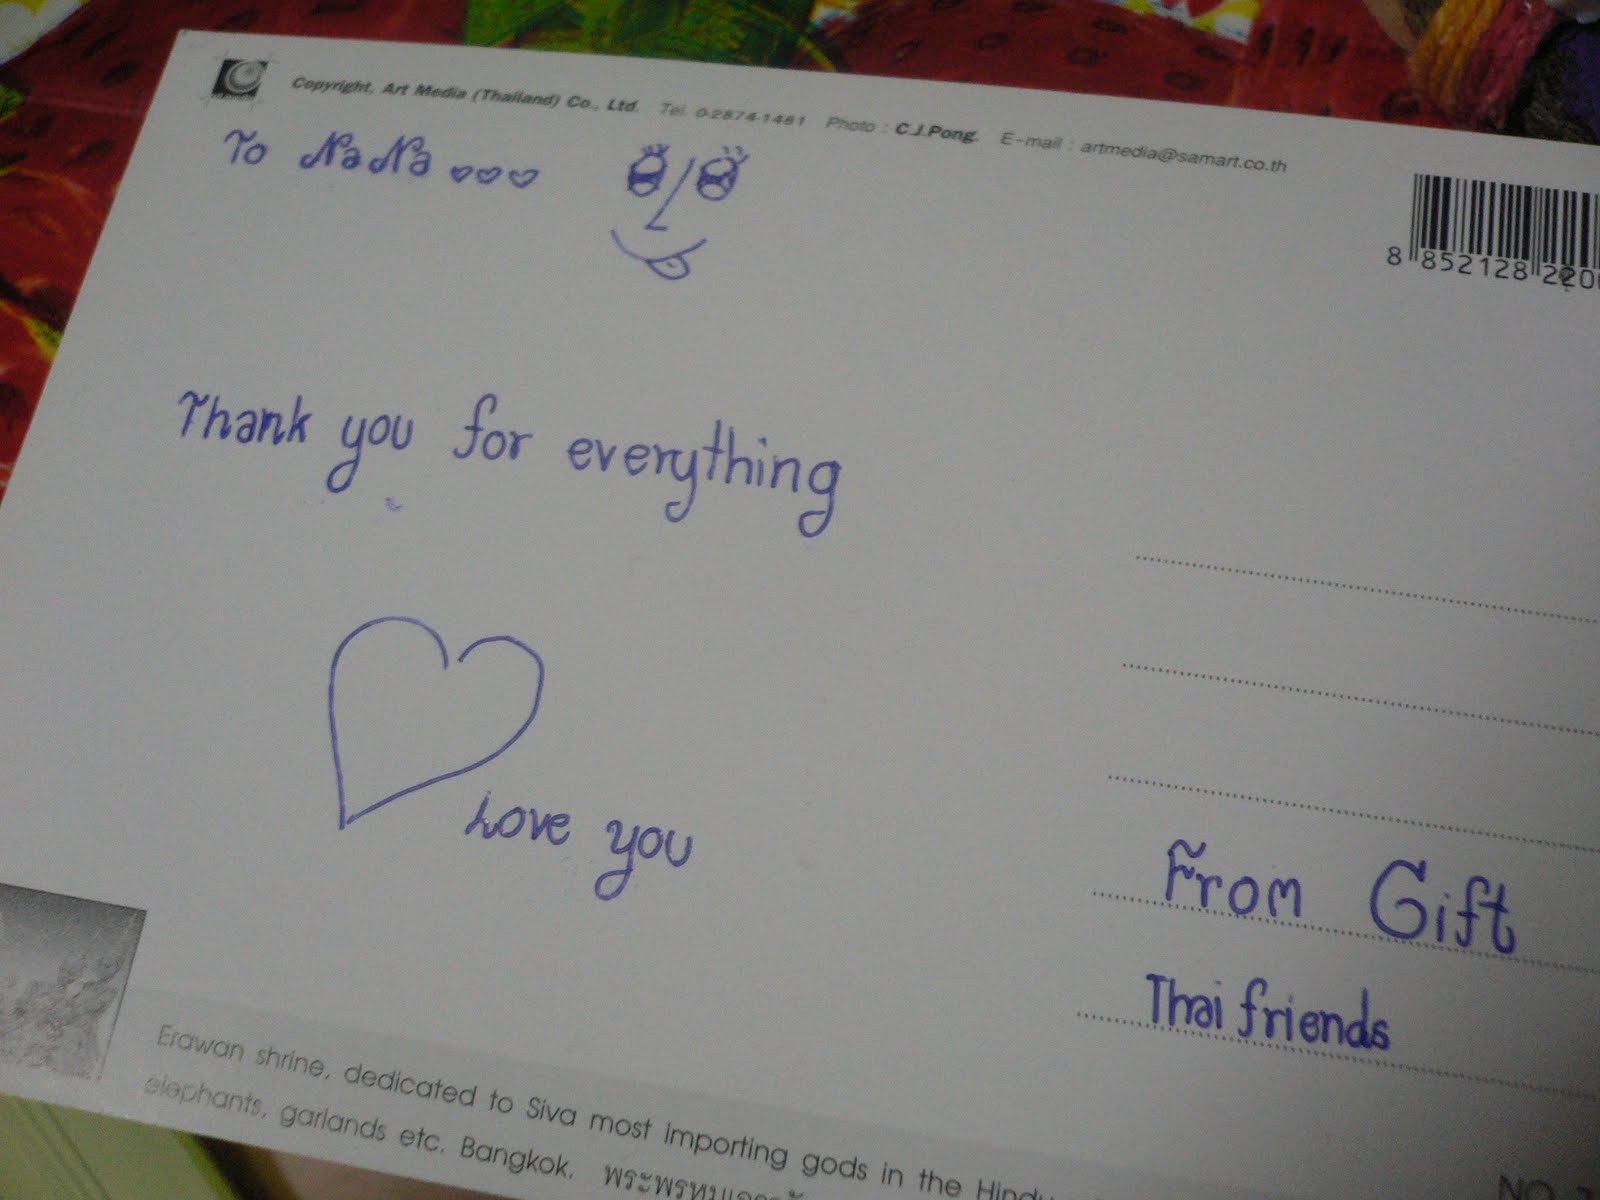 Copyright, Art Media (Thailand) Co., Ltd. Tel. 0-2874-1481 Photo : C.J.Pong. E-mail : artmedia@samart.co.th
To NaNa
8 852128 220
Thank you for everything
Love you
From Gift
Thai friends
Erawan shrine, dedicated to Siva most importing gods in the Hindu
elephants, garlands etc. Bangkok.
NO.